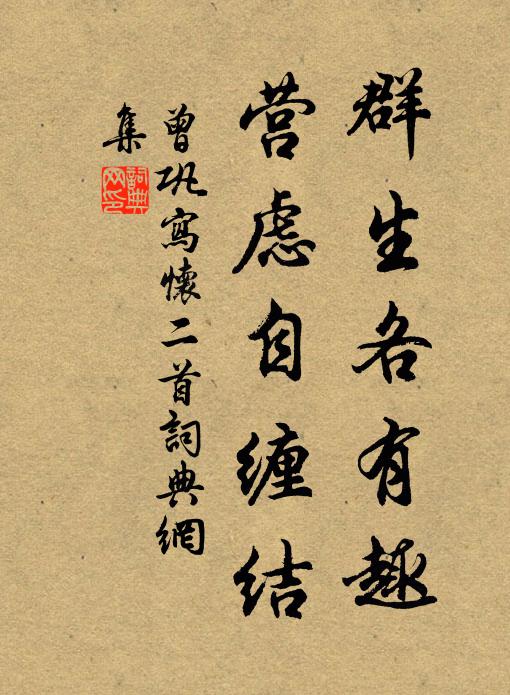 群生各有趣
营虑自缠结
曾巩寫懷二首詞典網
集
詞典
网印